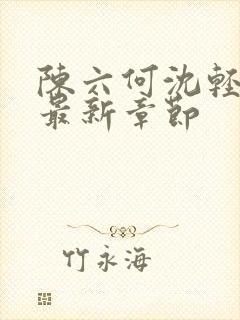 陳六何沈輕
最新章節
竹永海